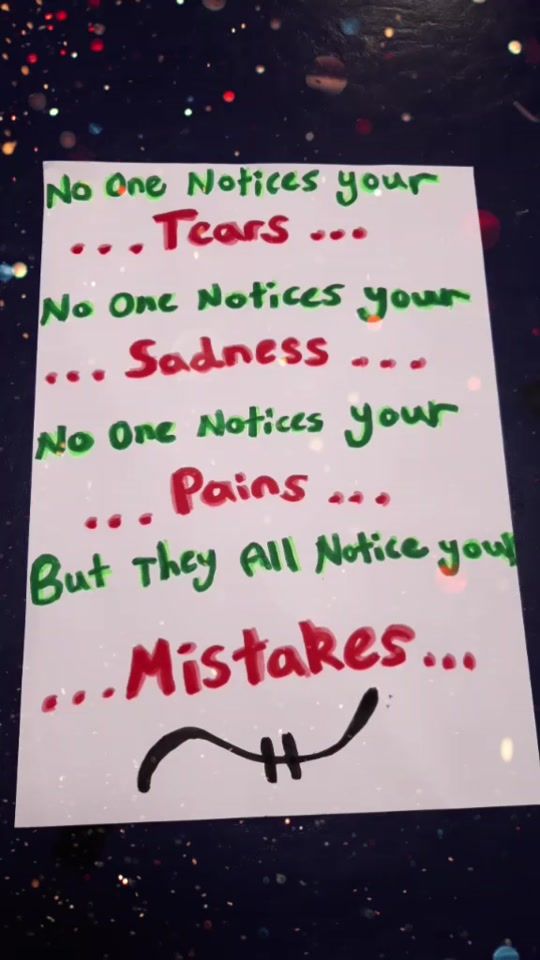 No One Notices your
...Tears...
No One Notices your
...Sadness...
No One Notices your
...Pains...
But They All Notice your
...Mistakes...